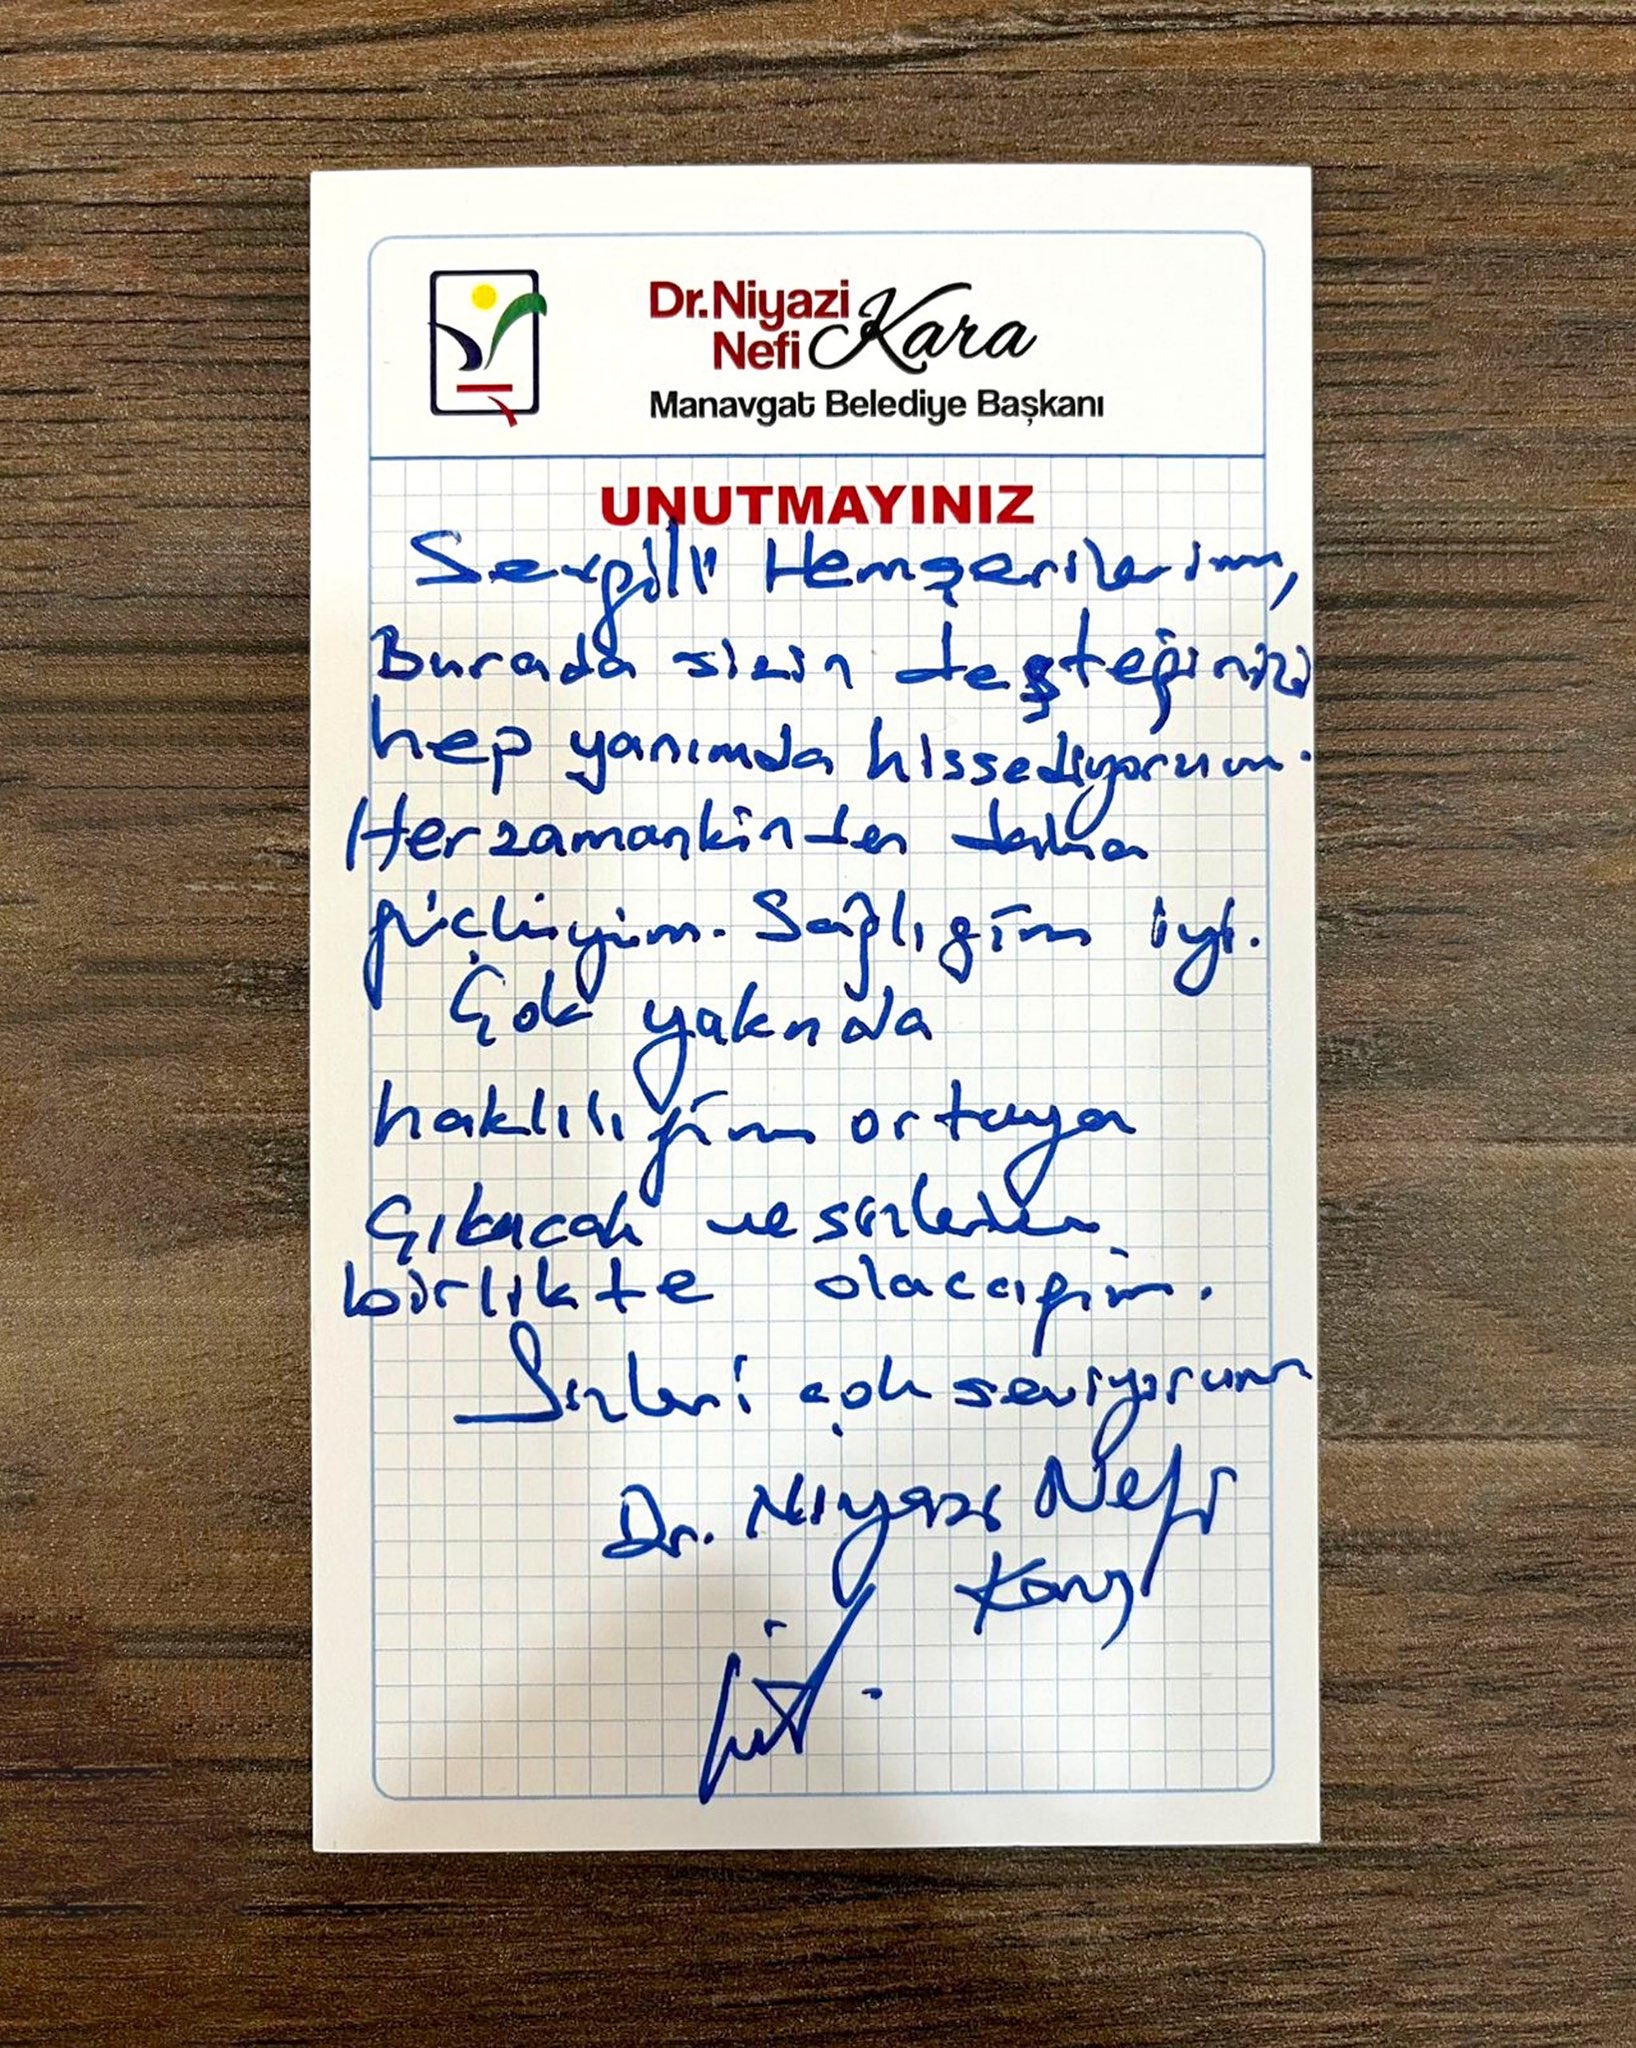 Dr. Niyazi
Nefi Kara
Manavgat Belediye Başkanı
UNUTMAYINIZ
Sevgili Hemşerilerim,
Burada sizin desteğinizi
hep yanımda hissediyorum.
Herzamankinden daha
güçlüyüm. Sağlığım iyi.
Çok yakında
haklılığım ortaya
çıkacak ve sizlerle
birlikte olacağım.
Sizleri çok seviyorum
Dr. Niyazi Nefi
Kara